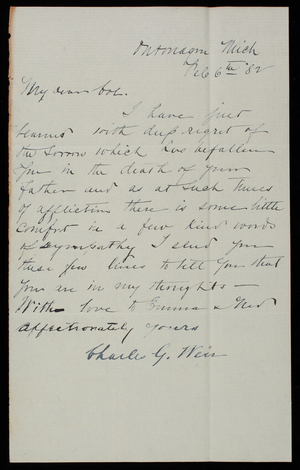 Ontonagon Mich
Feb 6th '82
My dear Col.
I have just
learned with deep regret of
the sorrow which has befallen
you in the death of your
father and as at such times
of affliction there is some little
comfort in a few kind words
of sympathy I send you
these few lines to tell you that
you are in my thoughts —
With love to Emma & Ned
Affectionately yours
Charles G. Weir